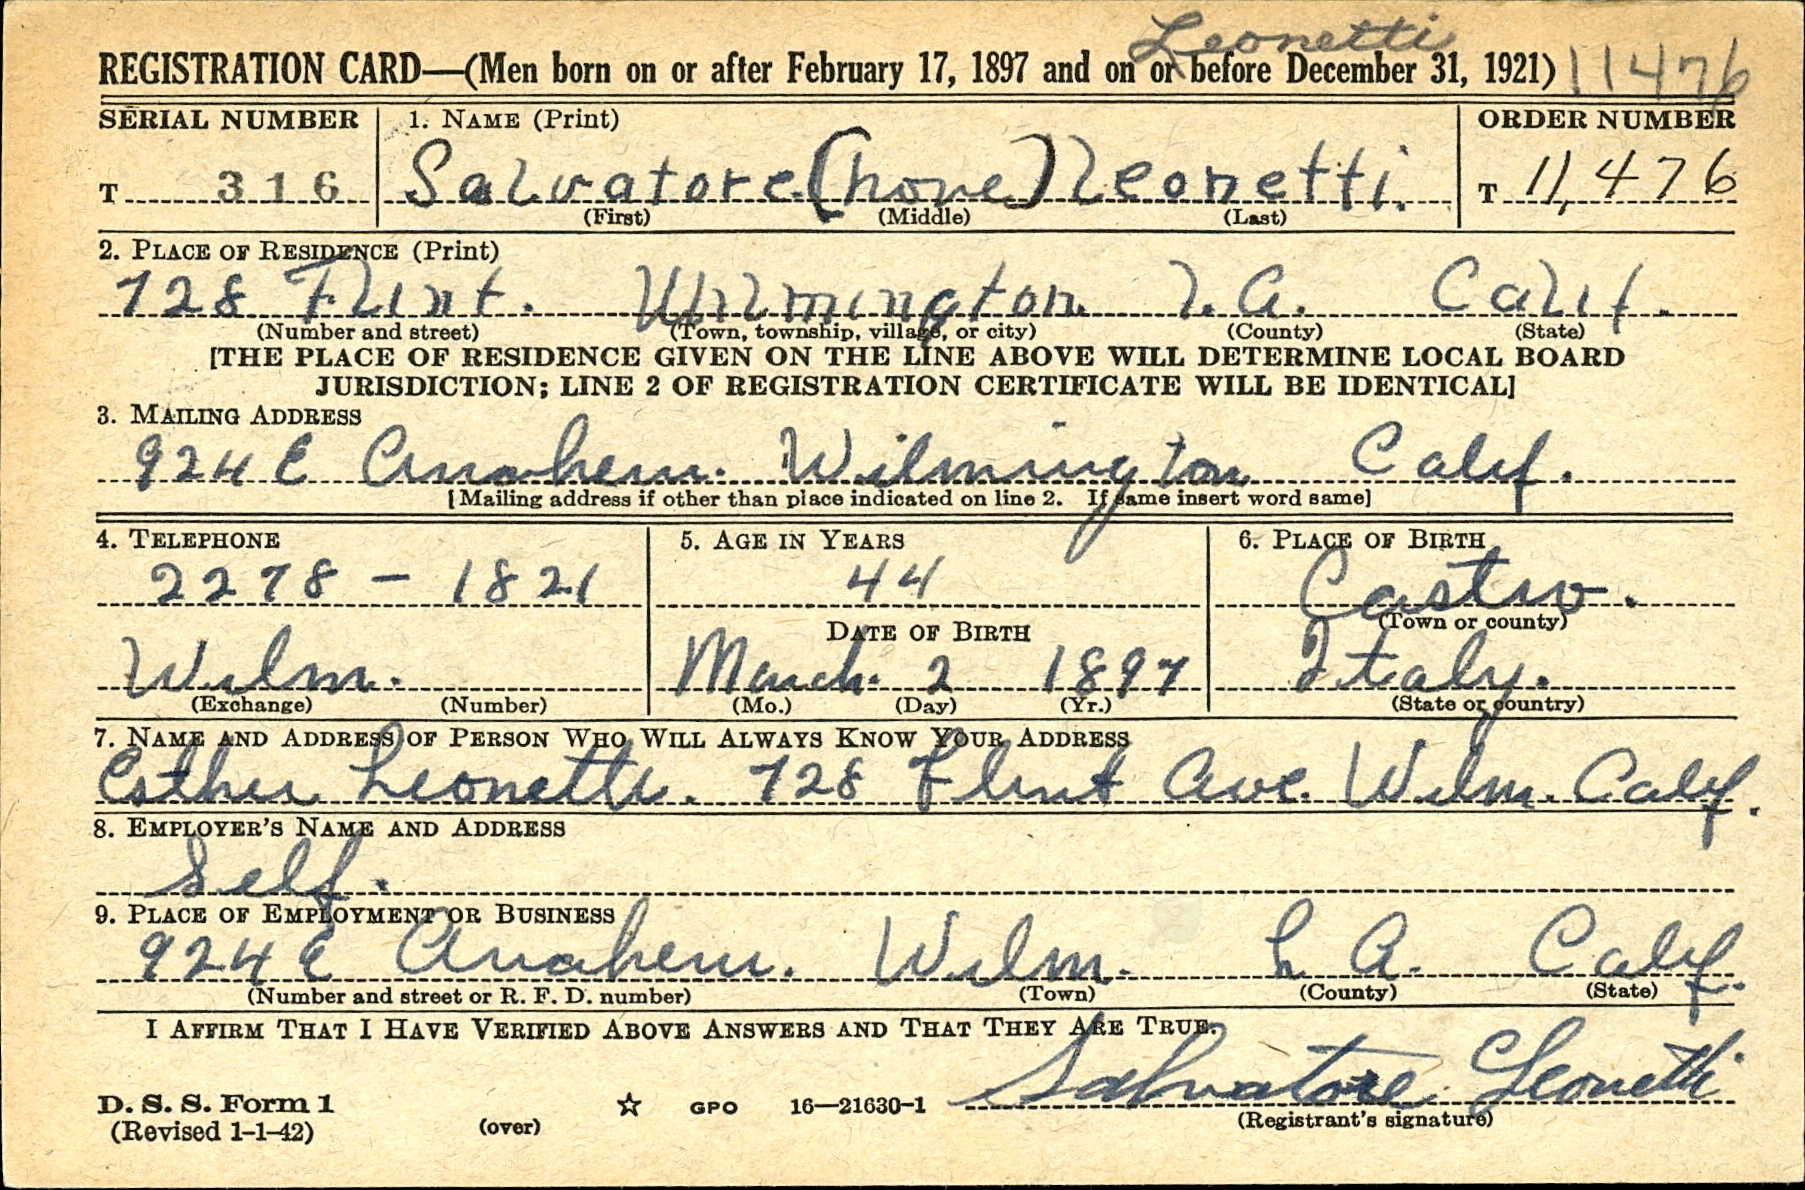 Leonetti
REGISTRATION CARD—(Men born on or after February 17, 1897 and on or before December 31, 1921) 11476
SERIAL NUMBER 1. NAME (Print) ORDER NUMBER
T 316 Salvatore (none) Leonetti. T 11,476
(First) (Middle) (Last)
2. PLACE OF RESIDENCE (Print)
728 Flint. Wilmington. L.A. Calif.
(Number and street) (Town, township, village, or city) (County) (State)
[THE PLACE OF RESIDENCE GIVEN ON THE LINE ABOVE WILL DETERMINE LOCAL BOARD
JURISDICTION; LINE 2 OF REGISTRATION CERTIFICATE WILL BE IDENTICAL]
3. MAILING ADDRESS
924 E Anahem. Wilmington Calif.
[Mailing address if other than place indicated on line 2. If same insert word same]
4. TELEPHONE 5. AGE IN YEARS 6. PLACE OF BIRTH
2278 - 1821 44 Castro.
(Town or county)
DATE OF BIRTH
Wilm. March. 2 1897 Italy.
(Exchange) (Number) (Mo.) (Day) (Yr.) (State or country)
7. NAME AND ADDRESS OF PERSON WHO WILL ALWAYS KNOW YOUR ADDRESS
Esther Leonetti. 728 Flint Ave. Wilm. Calif.
8. EMPLOYER'S NAME AND ADDRESS
Self.
9. PLACE OF EMPLOYMENT OR BUSINESS
924 E Anahem. Wilm. L A. Calif.
(Number and street or R. F. D. number) (Town) (County) (State)
I AFFIRM THAT I HAVE VERIFIED ABOVE ANSWERS AND THAT THEY ARE TRUE.
Salvatore Leonetti
D. S. S. Form 1 (over) ☆ GPO 16—21630-1 (Registrant's signature)
(Revised 1-1-42)